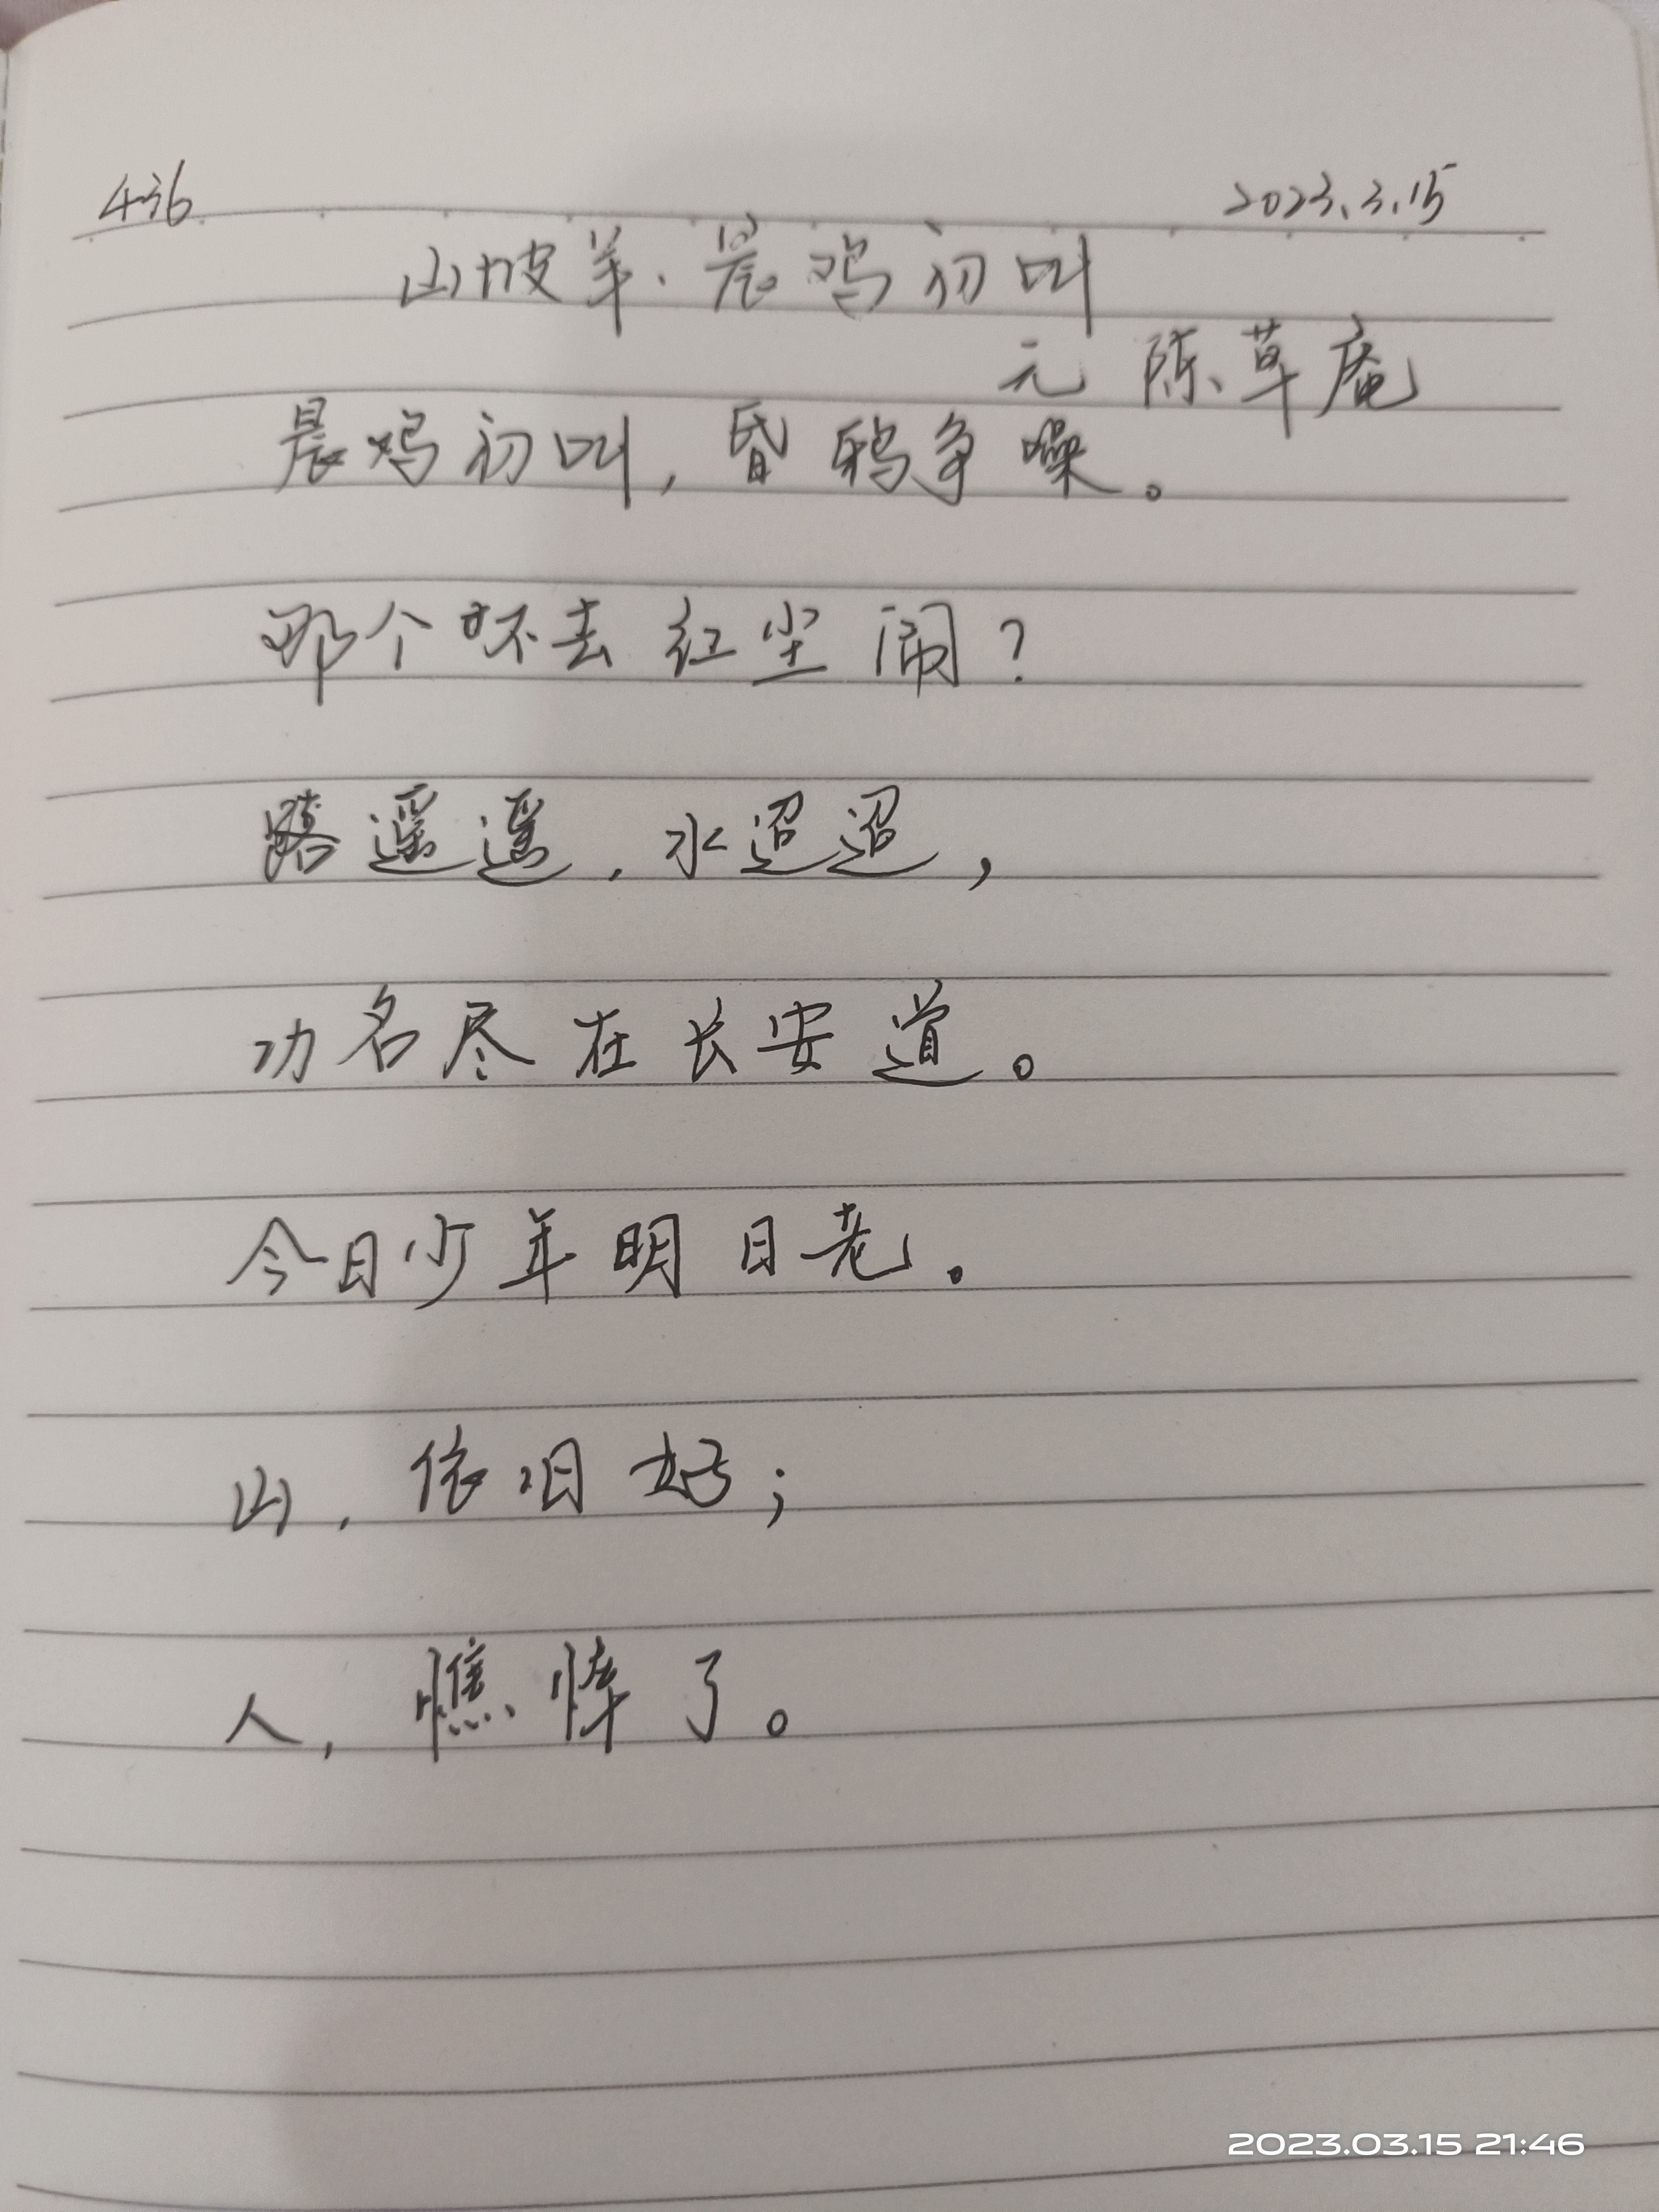 436 2023.3.15
山坡羊·晨鸡初叫
元 陈草庵
晨鸡初叫,昏鸦争噪。
那个怀去红尘闹?
路遥遥,水迢迢,
功名尽在长安道。
今日少年明日老。
山,依旧好;
人,憔悴了。
2023.03.15 21:46